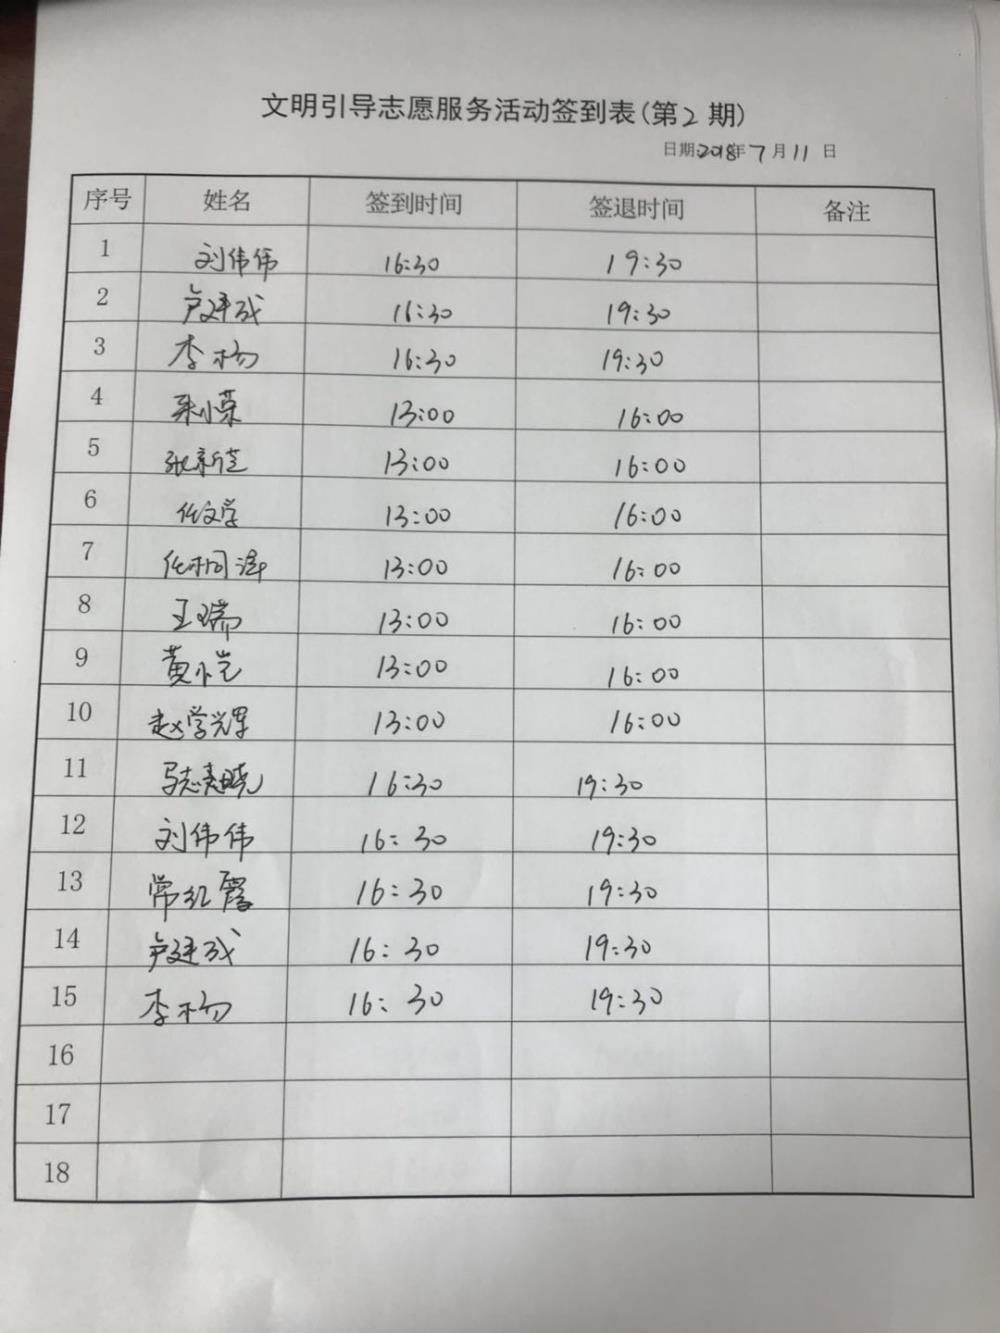 文明引导志愿服务活动签到表(第2期)
日期:2018年7月11日
序号 姓名 签到时间 签退时间 备注
1 刘伟伟 16:30 19:30
2 卢建成 16:30 19:30
3 李杨 16:30 19:30
4 朱小荣 13:00 16:00
5 张新莲 13:00 16:00
6 任文学 13:00 16:00
7 13:00 16:00
8 王瑞 13:00 16:00
9 黄小芒 13:00 16:00
10 赵学辉 13:00 16:00
11 16:30 19:30
12 刘伟伟 16:30 19:30
13 常红霞 16:30 19:30
14 卢建成 16:30 19:30
15 李杨 16:30 19:30
16
17
18